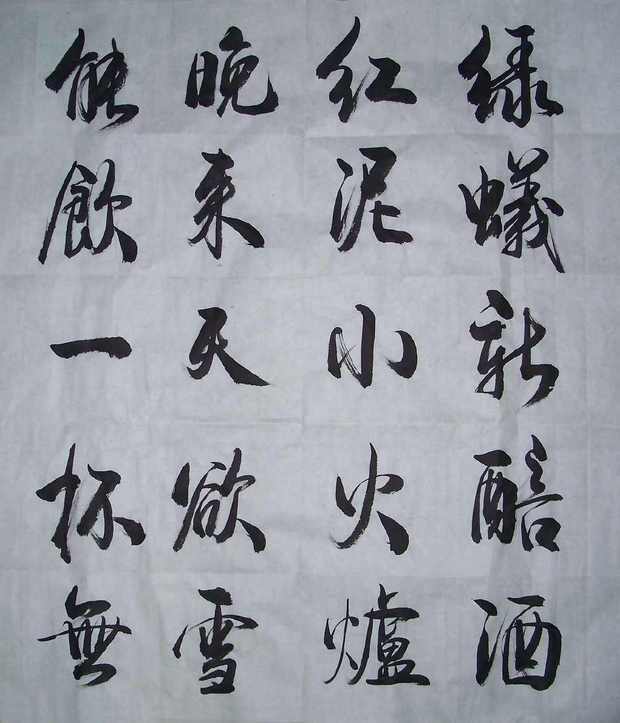 绿蟻新醅酒
红泥小火爐
晚来天欲雪
能飲一杯無